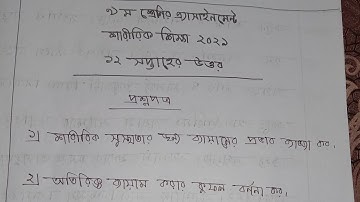 ৭ম শ্রেনির এ্যাসাইনমেন্ট
শারীরিক শিক্ষা ২০২১
১২ সপ্তাহের উত্তর
প্রশ্নপত্র
১) শারীরিক সুস্থতার ব্যায়ামের প্রভাব ব্যাখ্যা কর.
২) অতিরিক্ত ব্যায়াম করার কুফল বর্ননা কর.